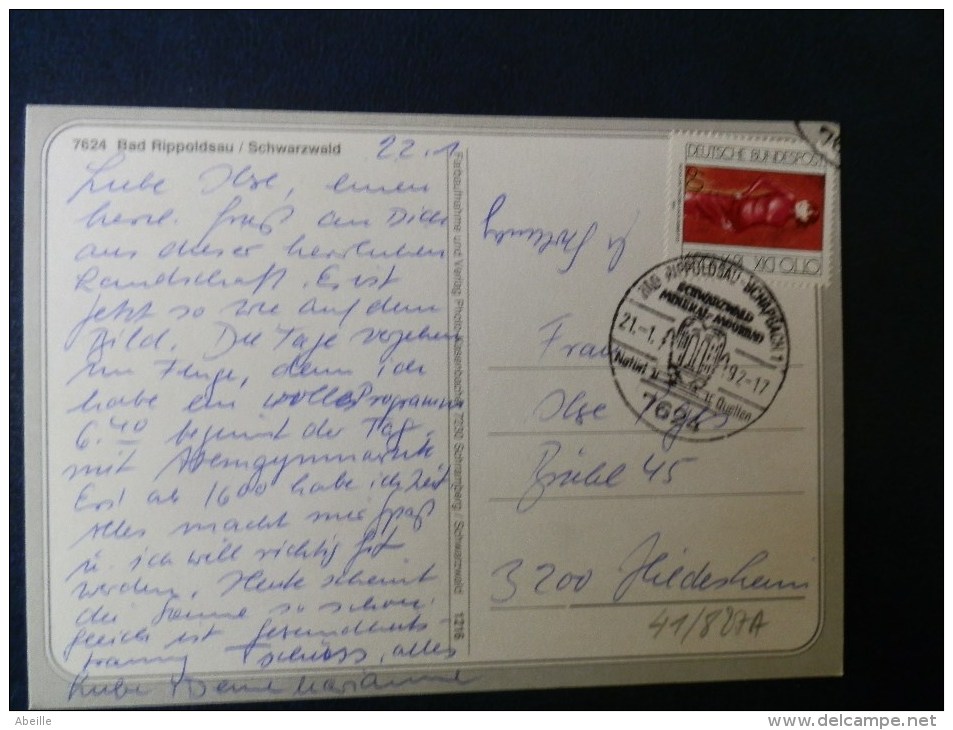 7624 Bad Rippoldsau / Schwarzwald
22.1
Liebe Ilse, einen
herzl. Gruß an Dich
aus dieser herrlichen
Landschaft. Es ist
jetzt so wie auf dem
Bild. Die Tage vergehen
im Fluge, denn ich
habe ein volles Programm
6.40 beginnt der Tag,
mit Atemgymnastik
Erst ab 1600 habe ich Zeit
Alles macht mir Spaß
u. ich will richtig fit
werden. Heute scheint
die Sonne so schön.
gleich ist Gesundheits-
training Tschüss, alles
Liebe Deine Marianne
Farbaufnahme und Verlag Photo 7230 Schramberg / Schwarzwald 1216
DEUTSCHE BUNDESPOST
OTTO DIX
BAD RIPPOLDSAU-SCHAPBACH 1
SCHWARZWALD
MINERAL-MOORBAD
21.-1. 92-17
Natur Quellen
7624
Frau
Ilse
Brühl 45
3200 Hildesheim
41/827A
Abeille
delcampe.net